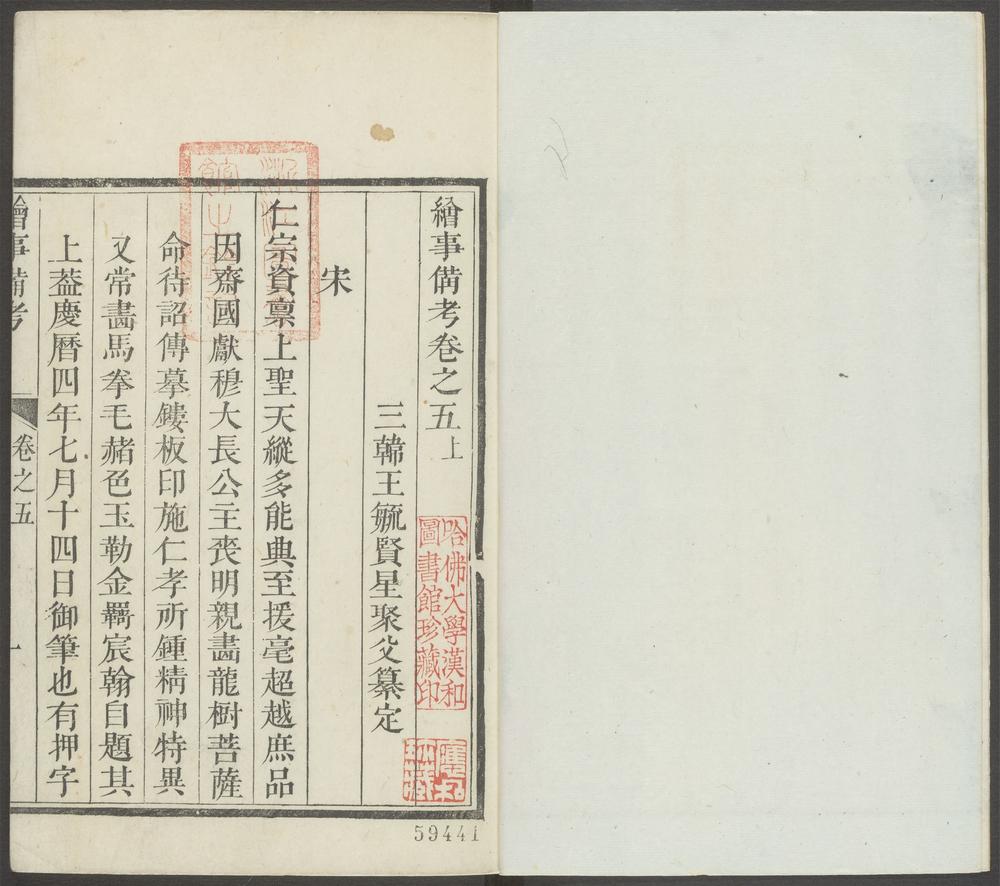 繪事備考卷之五上
三韓王毓賢星聚父纂定
宋
仁宗資禀上聖天縱多能典至援毫超越庶品
因齋國獻穆大長公主喪明親畵龍樹菩薩
命待詔傳摹鏤板印施仁孝所鍾精神特異
又常畵馬拳毛赭色玉勒金羇宸翰自題其
上葢慶曆四年七月十四日御筆也有押字
繪事備考
卷之五
一
哈佛大學漢和
圖書館珍藏印
59441